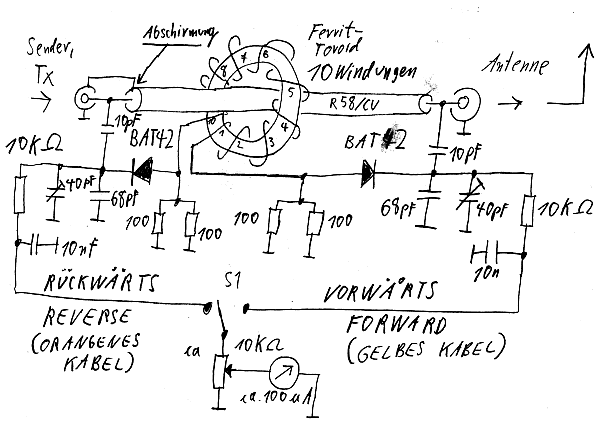 Abschirmung
Sender,
Tx
Ferrit-
Toroid
10 Windungen
Antenne
8 7 6
5
R58/CU
10
1 2 3 4
10pF
BAT42
BAT42
10pF
10KΩ
40pF
68pF
100
100
100
100
68pF
40pF
10KΩ
10nF
10n
RÜCKWÄRTS
REVERSE
(ORANGENES
KABEL)
S1
VORWÄRTS
FORWARD
(GELBES KABEL)
ca
10KΩ
ca. 100uA